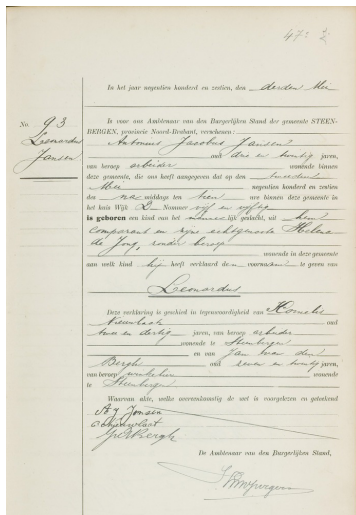 47
In het jaar negentien honderd en zestien, den derden Mei
No. 93
Leonardus
Jansen
In voor ons Ambtenaar van den Burgerlijken Stand der gemeente STEEN-
BERGEN, provincie Noord-Brabant, verschenen:
Antonius Jacobus Jansen
oud drie en twintig jaren,
van beroep arbeider wonende binnen
deze gemeente, die ons heeft aangegeven dat op den tweeden
Mei negentien honderd en zestien
des na middags te een ure binnen deze gemeente in
het huis Wijk D Nommer vijf en vijftig
is geboren een kind van het lijk geslacht, uit hem
comparant en zijne echtgenoote Helena
de Jong, zonder beroep
wonende in deze gemeente
aan welk kind hij heeft verklaard den voornaam te geven van
Leonardus
Deze verklaring is geschied in tegenwoordigheid van Kornelis
Nieuwlaat oud
twee en dertig jaren, van beroep arbeider
wonende te Steenbergen
en van Jan van den
Bergh oud zeven en twintig jaren,
van beroep wonende
te Steenbergen
Waarvan akte, welke overeenkomstig de wet is voorgelezen en geteekend
A J Jansen
C Nieuwlaat
Bergh
De Ambtenaar van den Burgerlijken Stand,